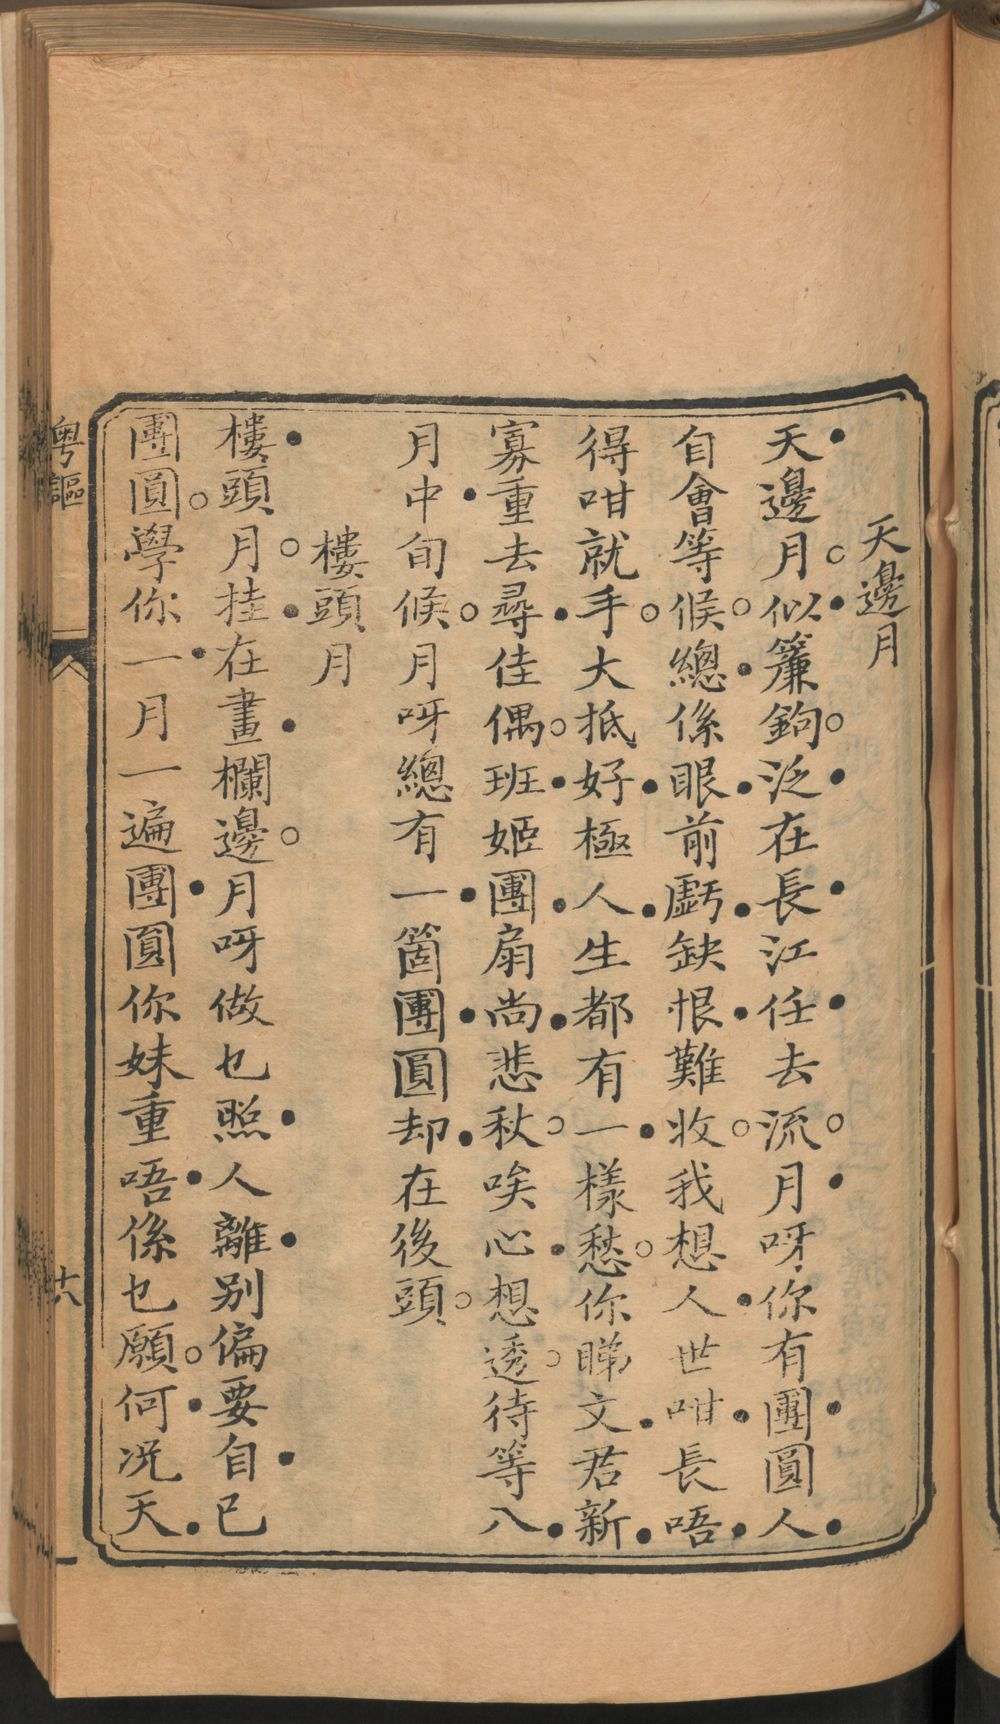 天邊月
天邊月似簾鉤泛在長江任去流月呀你有團圓人
自會等候總係眼前虧缺恨難收我想人世咁長唔
得咁就手大抵好極人生都有一樣愁你睇文君新
寡重去尋佳偶班姬團扇尚悲秋唉心想透待等八
月中旬候月呀總有一箇團圓却在後頭
樓頭月
樓頭月挂在畫欄邊月呀做乜照人離别偏要自己
團圓學你一月一遍團圓你妹重唔係乜願何况天
粵謳
六